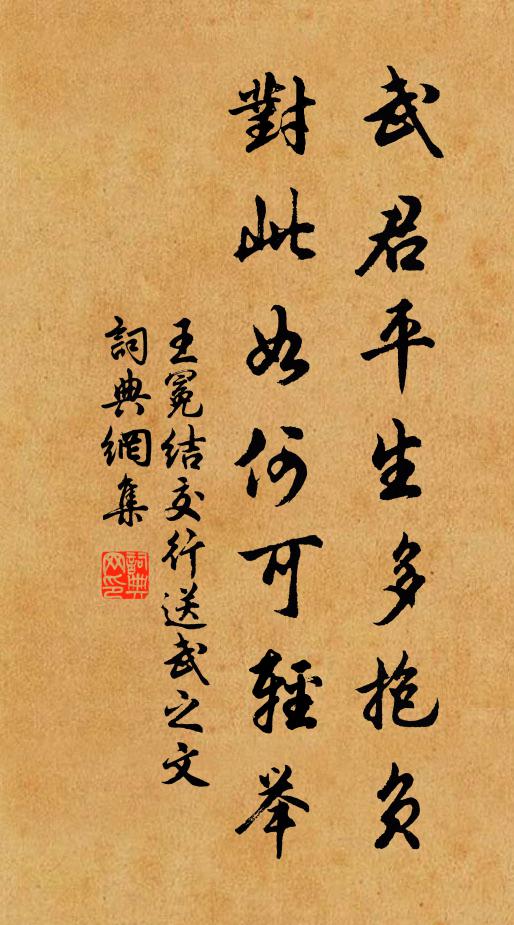 武君平生多抱負
對此如何可輕举
王冕结交行送武之文
詞典網集
詞典網印